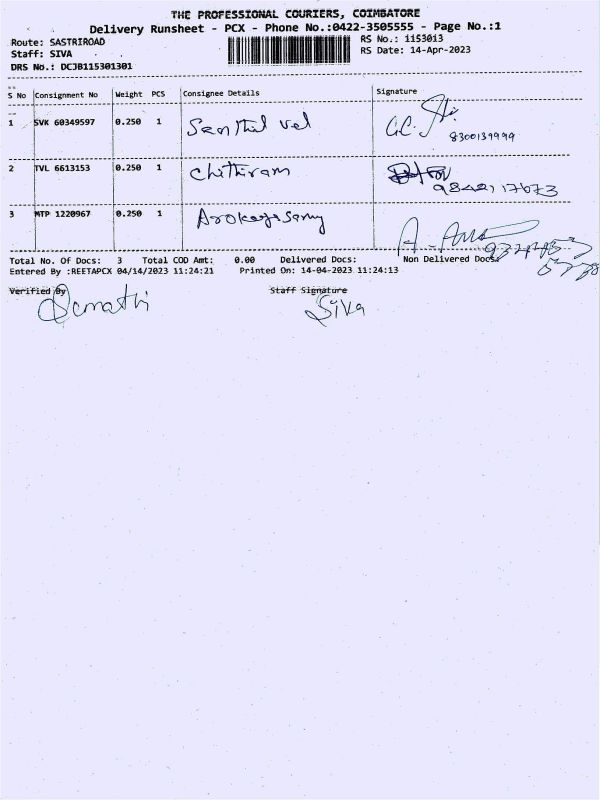 THE PROFESSIONAL COURIERS, COIMBATORE
Delivery Runsheet - PCX - Phone No.:0422-3505555 - Page No.:1
Route: SASTRIROAD
RS No.: 1153013
Staff: SIVA
RS Date: 14-Apr-2023
DRS No.: DCJB115301301
S No Consignment No Weight PCS Consignee Details Signature
1 SVK 60349597 0.250 1 Senthil vel
8300139999
2 TVL 6613153 0.250 1 Chithiram
9842117673
3 MTP 1220967 0.250 1 Arokeyasamy
Total No. Of Docs: 3 Total COD Amt: 0.00 Delivered Docs: Non Delivered Docs:
Entered By :REETAPCX 04/14/2023 11:24:21 Printed On: 14-04-2023 11:24:13
Verified By Staff Signature
Siva